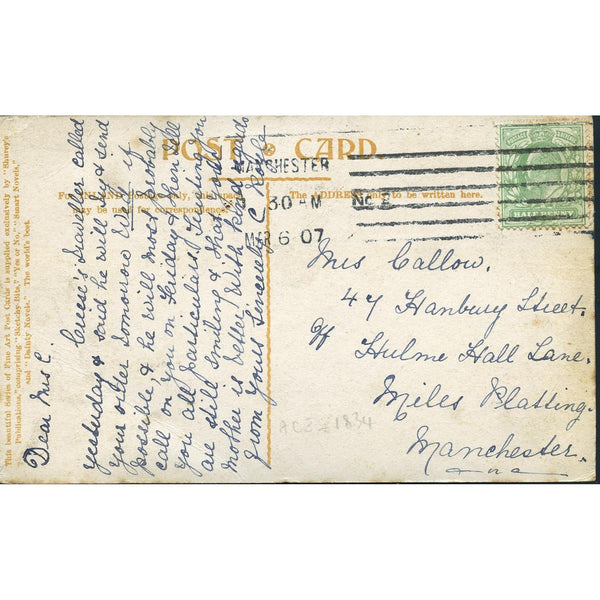 POST CARD.
For INLAND Postage only, this space
may be used for correspondence.
The ADDRESS only to be written here.
MANCHESTER
30 M
No 2
6 07
HALFPENNY
Dear Mrs C.
yesterday & said he will try & send
your either tomorrow only if
possible, & he will most probably
call on you on Friday & then tell
you all particulars. I hope you
are still smiling & that your
mother is better. With kind regards
from yours sincerely C.
Mrs Callow.
47 Hanbury Street.
Off Hulme Hall Lane.
Miles Platting.
Manchester.
This beautiful Series of Fine Art Post Cards is supplied exclusively by "Shurey's
Publications," comprising "Sketchy-Bits," "Yes or No," "Smart Novels,"
and "Dainty Novels." The world's best.